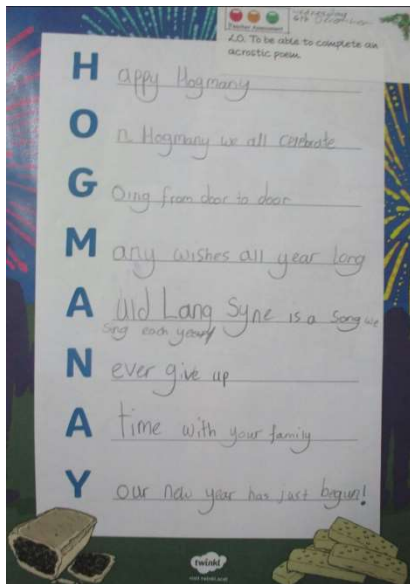 Teacher Assessment
Wednesday
6th December
L.O. To be able to complete an
acrostic poem.
Happy Hogmany
On Hogmany we all celebrate
GOing from door to door
Many wishes all year long
Auld Lang Syne is a song we
sing each year
Never give up
A time with your family
Your new year has just begun!
twinkl
visit twinkl.scot